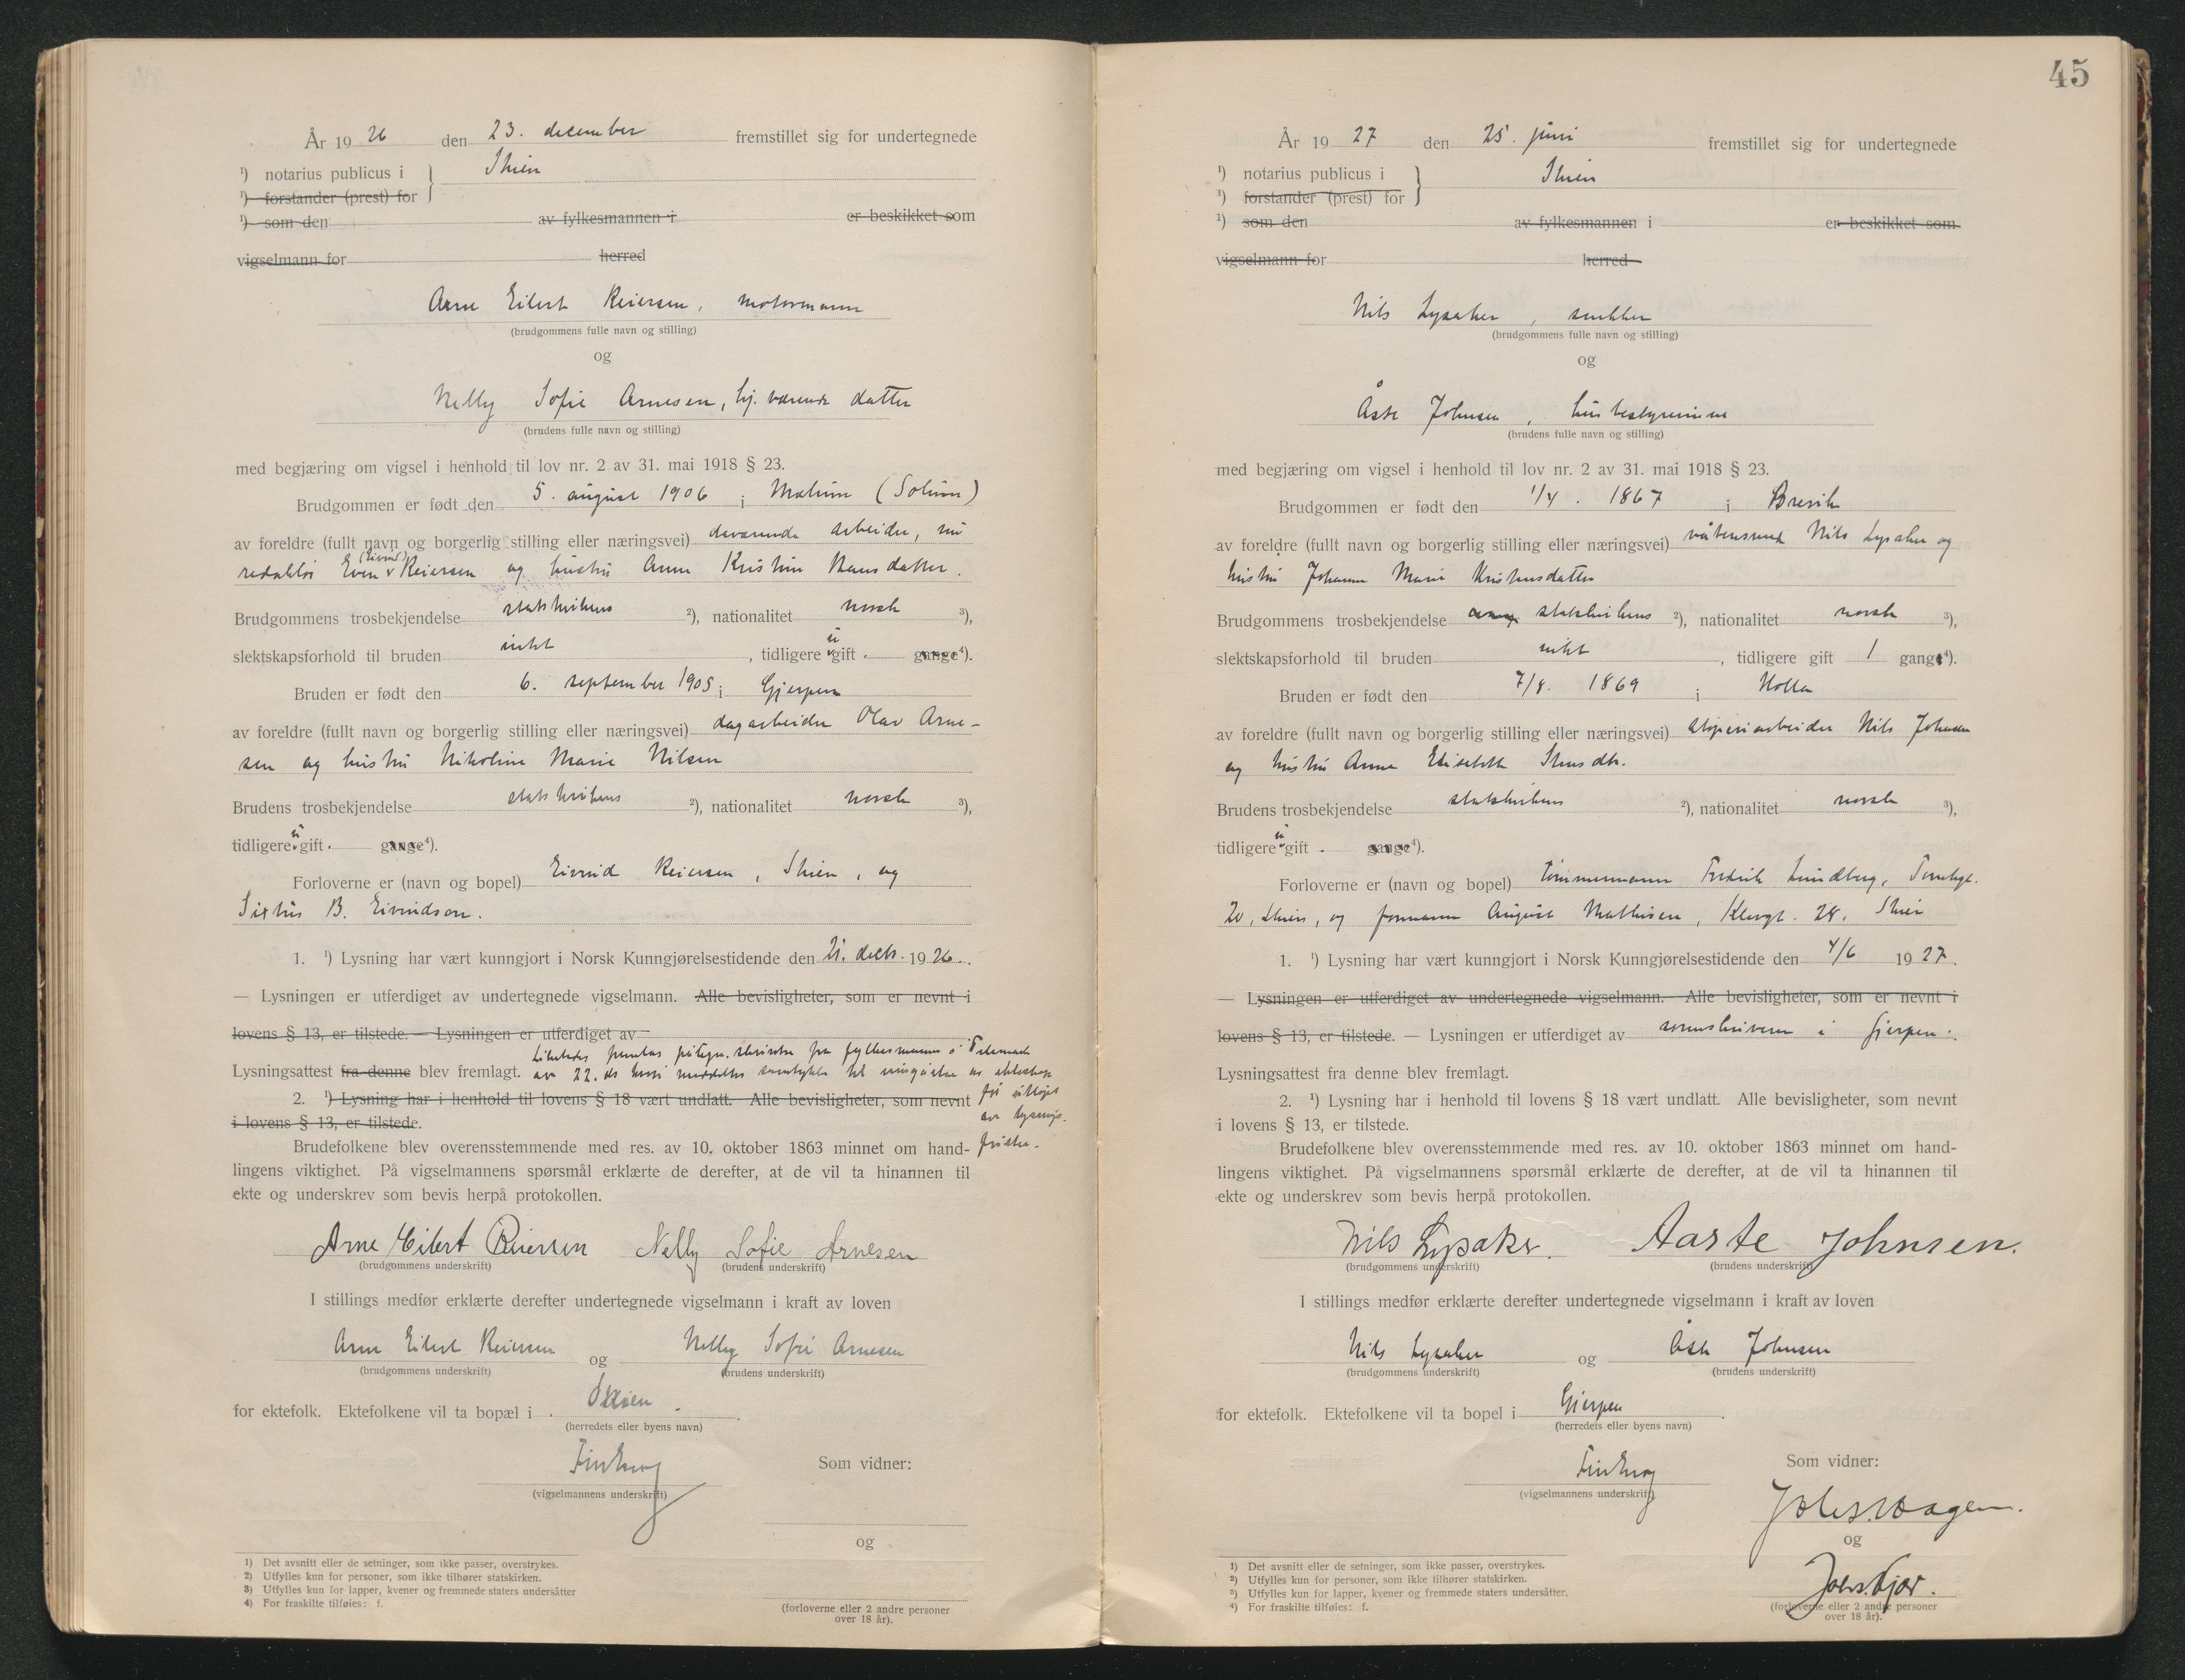 År 19 26 den 23. december fremstillet sig for undertegnede
¹) notarius publicus i Skien
¹) forstander (prest) for
¹) som den av fylkesmannen i er beskikket som
vigselmann for herred
Arne Eilert Reiersen, motormann
(brudgommens fulle navn og stilling)
og
Nelly Sofie Arnesen, hj. værende datter
(brudens fulle navn og stilling)
med begjæring om vigsel i henhold til lov nr. 2 av 31. mai 1918 § 23.
Brudgommen er født den 5. august 1906 i Mælum (Solum)
av foreldre (fullt navn og borgerlig stilling eller næringsvei) daværende arbeider, nu
redaktør Even (Eivind) Reiersen og hustru Anne Kristine Hansdatter.
Brudgommens trosbekjendelse statskirkens ²), nationalitet norsk ³),
slektskapsforhold til bruden intet , tidligere u gift gange⁴).
Bruden er født den 6. september 1905 i Gjerpen
av foreldre (fullt navn og borgerlig stilling eller næringsvei) dagarbeider Olav Arne-
sen og hustru Nikoline Marie Nilsen
Brudens trosbekjendelse statskirkens ²), nationalitet norsk ³),
tidligere u gift gange⁴).
Forloverne er (navn og bopel) Eivind Reiersen, Skien, og
Sixtus B. Eivindson.
1. ¹) Lysning har vært kunngjort i Norsk Kunngjørelsestidende den 21. decbr. 19 26.
— Lysningen er utferdiget av undertegnede vigselmann. Alle bevisligheter, som er nevnt i
lovens § 13, er tilstede. — Lysningen er utferdiget av
Likeledes fremlas påtegn. skrivelse fra fylkesmannen i Telemark
Lysningsattest fra denne blev fremlagt. av 22. ds hvori meddeltes samtykke til inngåelse av ekteskap
2. ¹) Lysning har i henhold til lovens § 18 vært undlatt. Alle bevisligheter, som nevnt før utløpet
i lovens § 13, er tilstede. av lysnings-
Brudefolkene blev overensstemmende med res. av 10. oktober 1863 minnet om hand- fristen.
lingens viktighet. På vigselmannens spørsmål erklærte de derefter, at de vil ta hinannen til
ekte og underskrev som bevis herpå protokollen.
Arne Eilert Reiersen Nelly Sofie Arnesen
(brudgommens underskrift) (brudens underskrift)
I stillings medfør erklærte derefter undertegnede vigselmann i kraft av loven
Arne Eilert Reiersen og Nelly Sofie Arnesen
(brudgommens underskrift) (brudens underskrift)
for ektefolk. Ektefolkene vil ta bopæl i Skien.
(herredets eller byens navn)
Som vidner:
(vigselmannens underskrift)
og
(forloverne eller 2 andre personer
over 18 år).
1) Det avsnitt eller de setninger, som ikke passer, overstrykes.
2) Utfylles kun for personer, som ikke tilhører statskirken.
3) Utfylles kun for lapper, kvener og fremmede staters undersåtter
4) For fraskilte tilføies: f.
45
År 19 27 den 25. juni fremstillet sig for undertegnede
¹) notarius publicus i Skien
¹) forstander (prest) for
¹) som den av fylkesmannen i er beskikket som
vigselmann for herred
Nils Lysaker, snekker
(brudgommens fulle navn og stilling)
og
Åste Johnsen, husbestyrerinne
(brudens fulle navn og stilling)
med begjæring om vigsel i henhold til lov nr. 2 av 31. mai 1918 § 23.
Brudgommen er født den 1/4. 1867 i Brevik
av foreldre (fullt navn og borgerlig stilling eller næringsvei) Nils Lysaker og
hustru Johanne Marie Kristensdatter
Brudgommens trosbekjendelse statskirkens ²), nationalitet norsk ³),
slektskapsforhold til bruden intet , tidligere gift 1 gang⁴).
Bruden er født den 7/8. 1869 i Holla
av foreldre (fullt navn og borgerlig stilling eller næringsvei) støperiarbeider Nils Johnsen
og hustru Anne Elisabeth
Brudens trosbekjendelse statskirkens ²), nationalitet norsk ³),
tidligere u gift gange⁴).
Forloverne er (navn og bopel) tømmermann Fredrik Lundberg,
20, Skien, og formann August Mathisen, 28, Skien
1. ¹) Lysning har vært kunngjort i Norsk Kunngjørelsestidende den 4/6 19 27.
— Lysningen er utferdiget av undertegnede vigselmann. Alle bevisligheter, som er nevnt i
lovens § 13, er tilstede. — Lysningen er utferdiget av sorenskriveren i Gjerpen.
Lysningsattest fra denne blev fremlagt.
2. ¹) Lysning har i henhold til lovens § 18 vært undlatt. Alle bevisligheter, som nevnt
i lovens § 13, er tilstede.
Brudefolkene blev overensstemmende med res. av 10. oktober 1863 minnet om hand-
lingens viktighet. På vigselmannens spørsmål erklærte de derefter, at de vil ta hinannen til
ekte og underskrev som bevis herpå protokollen.
Nils Lysaker. Aaste Johnsen.
(brudgommens underskrift) (brudens underskrift)
I stillings medfør erklærte derefter undertegnede vigselmann i kraft av loven
Nils Lysaker og Åste Johnsen
(brudgommens underskrift) (brudens underskrift)
for ektefolk. Ektefolkene vil ta bopel i Gjerpen.
(herredets eller byens navn)
Som vidner:
(vigselmannens underskrift)
og
(forloverne eller 2 andre personer
over 18 år).
1) Det avsnitt eller de setninger, som ikke passer, overstrykes.
²) Utfylles kun for personer, som ikke tilhører statskirken.
³) Utfylles kun for lapper, kvener og fremmede staters undersåtter.
⁴) For fraskilte tilføies: f.